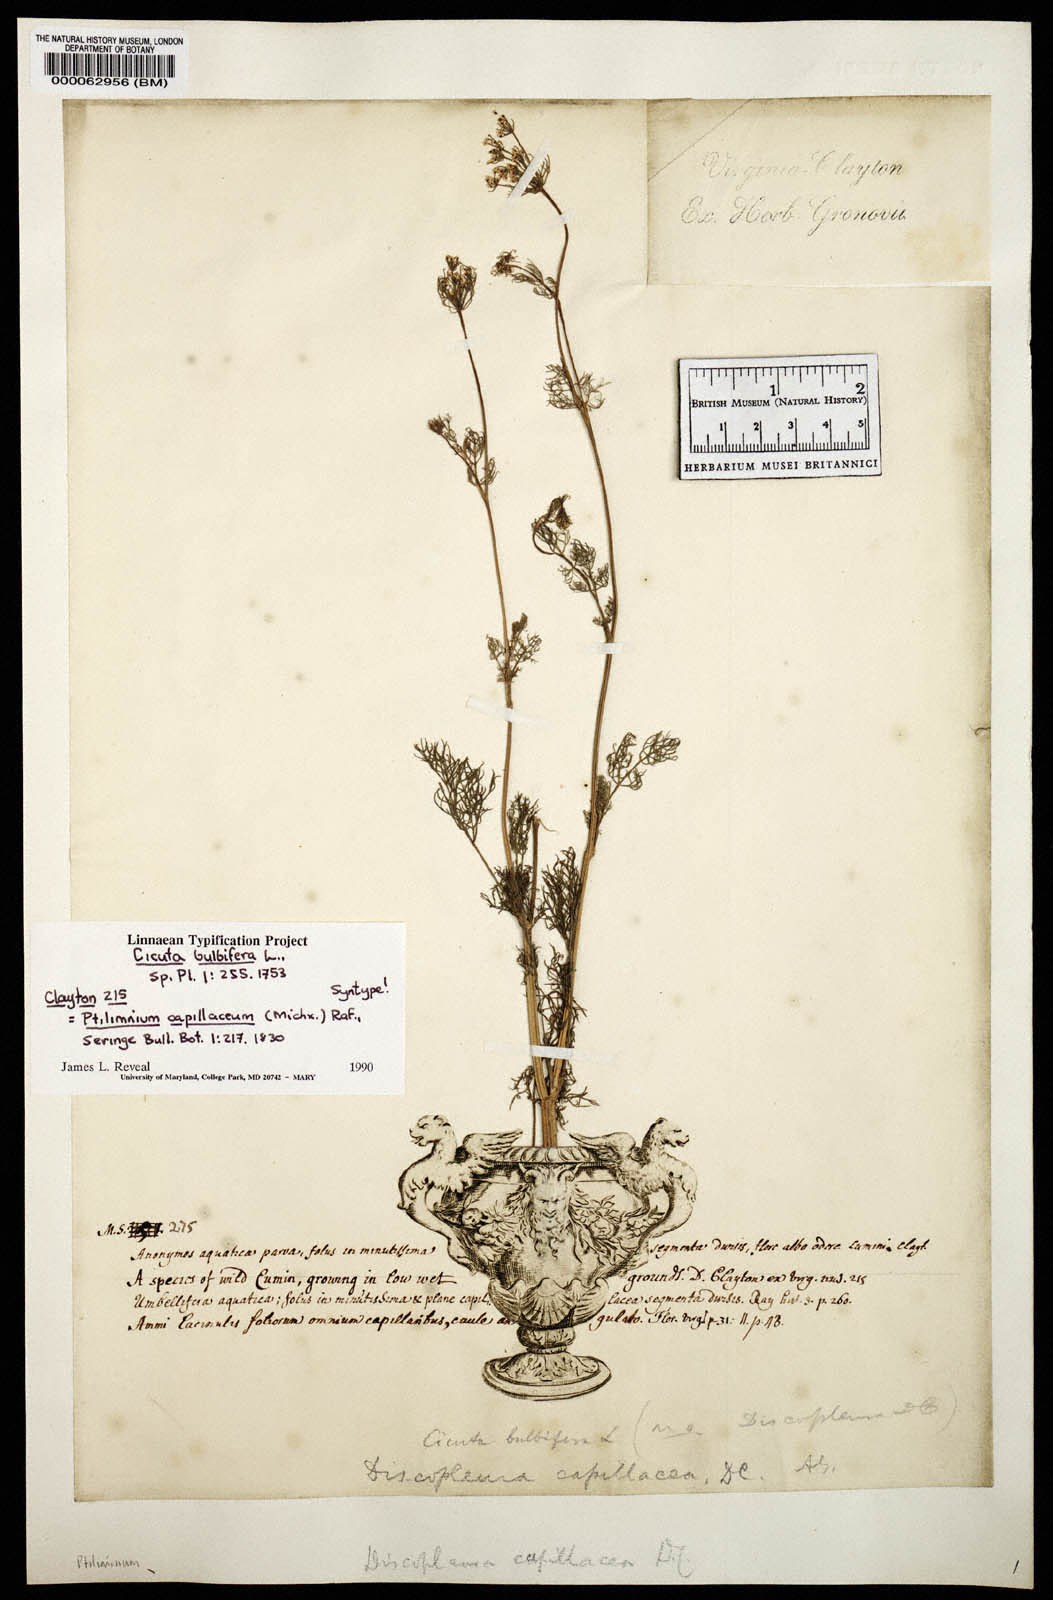 THE NATURAL HISTORY MUSEUM, LONDON
DEPARTMENT OF BOTANY
000062956 (BM)
Virginia. Clayton
Ex. Herb. Gronovii
1 2
BRITISH MUSEUM (NATURAL HISTORY)
1 2 3 4 5
HERBARIUM MUSEI BRITANNICI
Linnaean Typification Project
Cicuta bulbifera L.,
Sp. Pl. 1: 255. 1753
Clayton 215 Syntype!
= Ptilimnium capillaceum (Michx.) Raf.,
Seringe Bull. Bot. 1: 217. 1830
James L. Reveal 1990
University of Maryland, College Park, MD 20742 – MARY
M.S. 215
Anonymos aquatica parva, foliis in minutissima segmenta divisis, flore albo odore Cumini Clayt.
A species of wild Cumin, growing in low wet grounds. D. Clayton ex Virg. n. 215
Umbellifera aquatica; foliis in minutissima & plane capillacea segmenta divisis. Ray hist. 3. p. 260.
Ammi lacinulis foliorum omnium capillaribus, caule angulato. Flor. Virg. p. 31. II. p. 48.
Cicuta bulbifera L ( Discopleura DC)
Discopleura capillacea, DC.
Ptilimnium
Discopleura capillacea DC
1